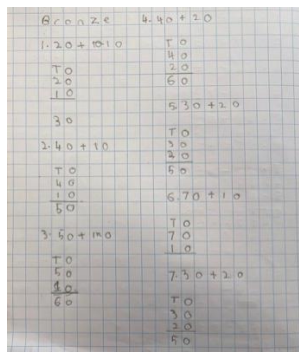 Bronze
1. 20 + 10
T O
2 0
1 0
3 0
2. 40 + 10
T O
4 0
1 0
5 0
3. 50 + 10
T O
5 0
1 0
6 0
4. 40 + 20
T O
4 0
2 0
6 0
5. 30 + 20
T O
3 0
2 0
5 0
6. 70 + 10
T O
7 0
1 0
7. 30 + 20
T O
3 0
2 0
5 0